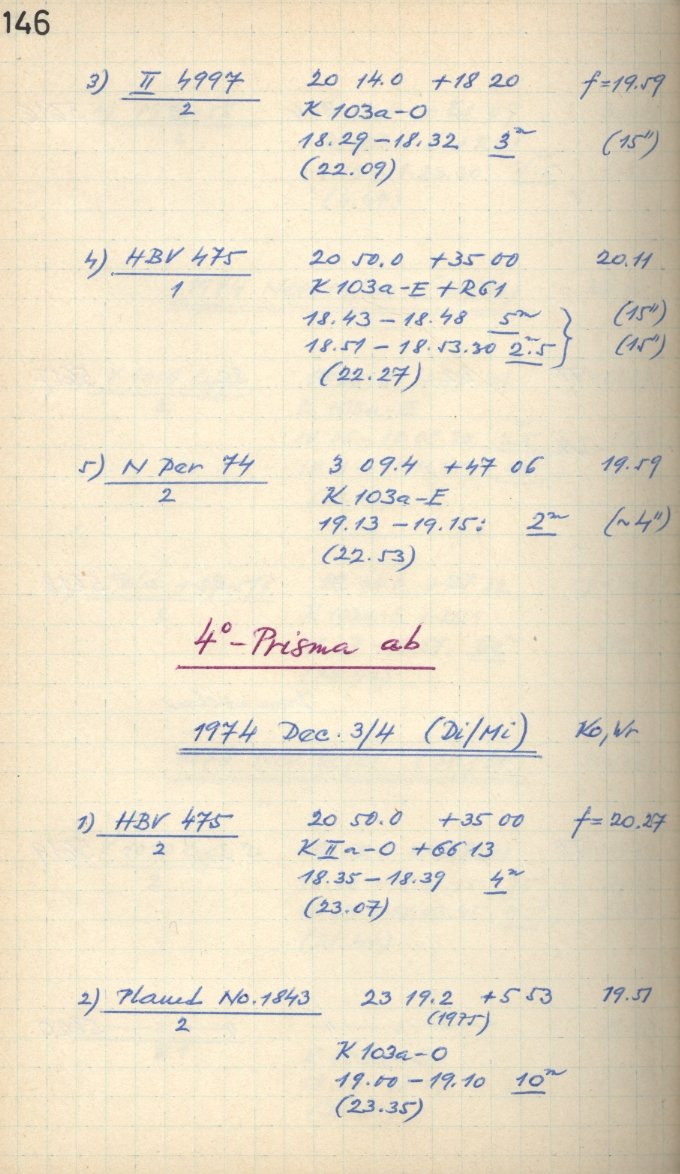 146
3) II 4997 20 14.0 +18 20 f=19.59
2 K 103a-O
18.29-18.32 3m (15")
(22.09)
4) HBV 475 20 50.0 +35 00 20.11
1 K 103a-E + RG1
18.43-18.48 5m } (15")
18.51-18.53.30 2m.5 (15")
(22.27)
5) N Per 74 3 09.4 +47 06 19.59
2 K 103a-E
19.13-19.15: 2m (~4")
(22.53)
4°-Prisma ab
1974 Dec. 3/4 (Di/Mi) Ko, Wr
1) HBV 475 20 50.0 +35 00 f=20.27
2 K IIa-O +GG13
18.35-18.39 4m
(23.07)
2) Planet No. 1843 23 19.2 +5 53 19.51
2 (1975)
K 103a-O
19.00-19.10 10m
(23.35)